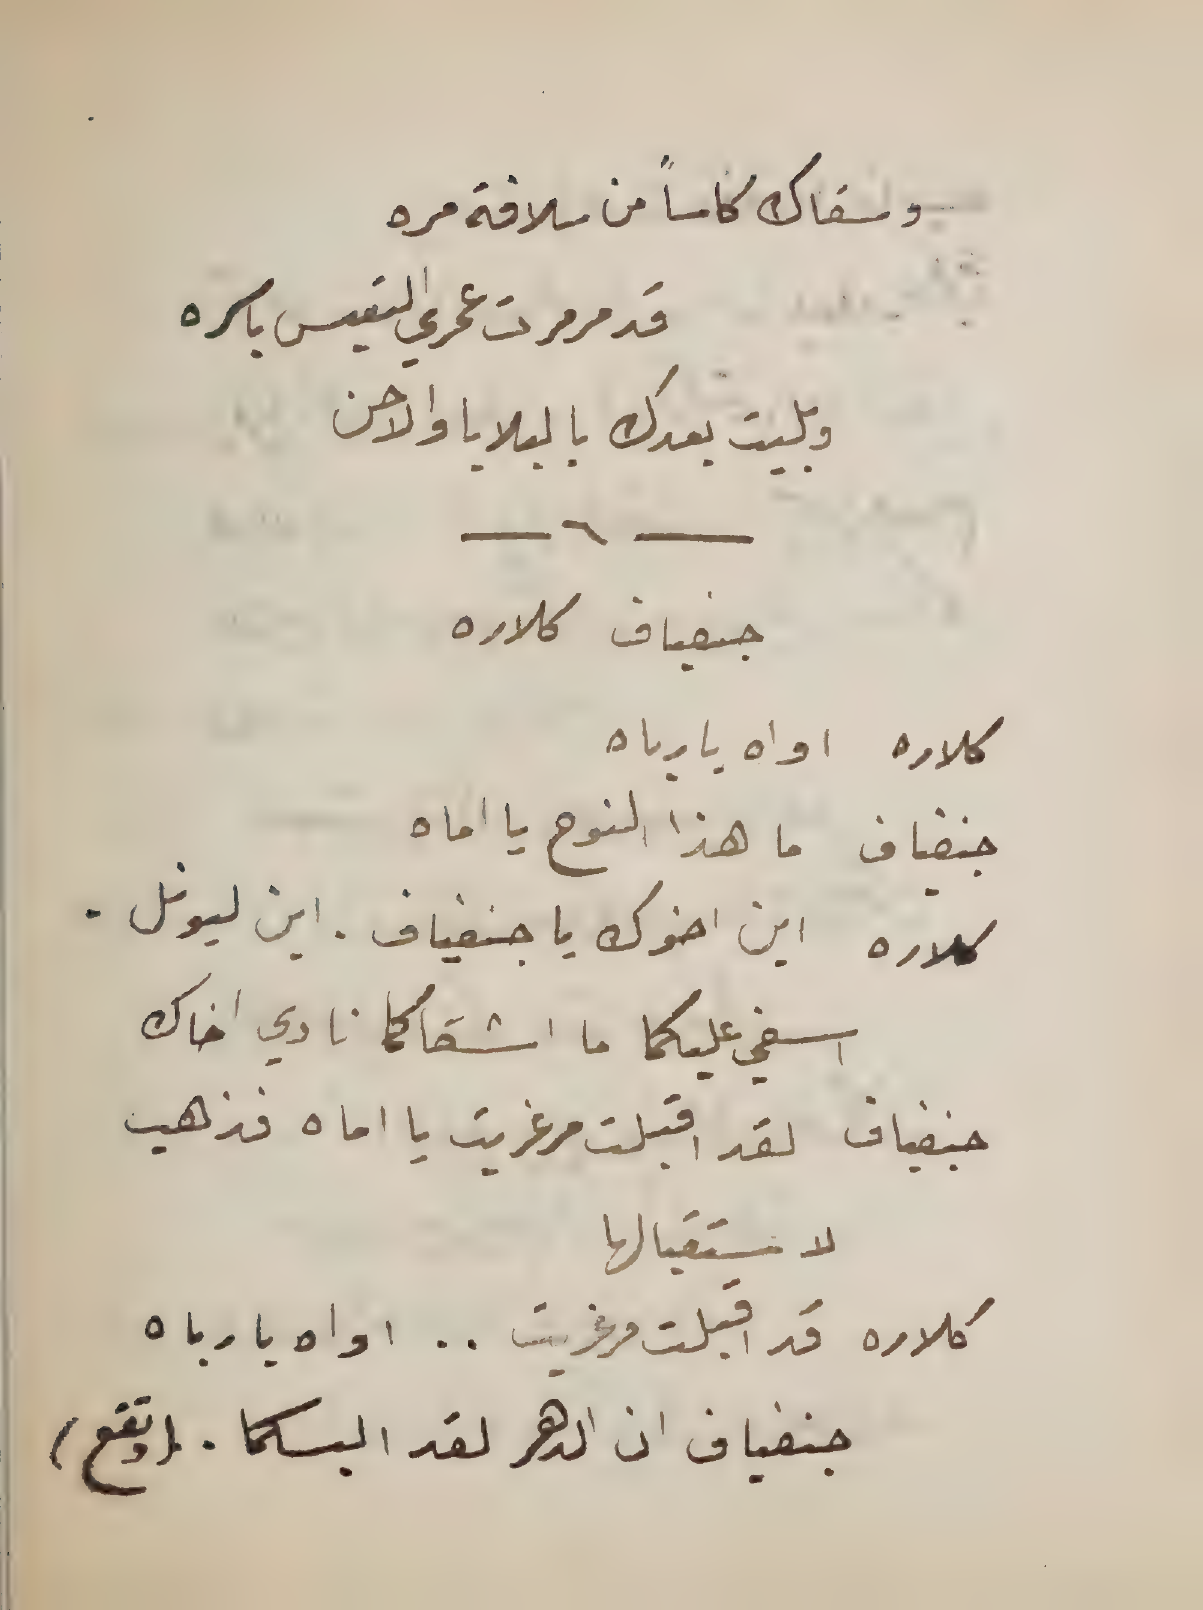 وسقاك كاساً من سلافة مره
قد مرمرت عمري التعيس باكره
وبليت بعدك بالبلايا والاحن
— ٦ —
جنفياف كلاره
كلاره اواه يا رباه
جنفياف ما هذا النوح يا اماه
كلاره اين اخوك يا جنفياف . اين ليونل .
اسفي عليكما ما اشقاكما نادي اخاك
جنفياف لقد اقبلت مرغريت يا اماه فذهب
لاستقبالها
كلاره قد اقبلت مرغريت .. اواه يا رباه
جنفياف ان الدهر لقد البسكما . . (وتقع)